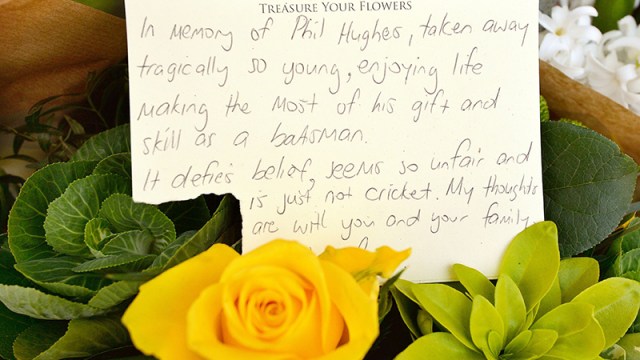 TREASURE YOUR FLOWERS
In Memory of Phil Hughes, taken away
tragically so young, enjoying life
making the most of his gift and
skill as a batsman.
It defies belief, seems so unfair and
is just not cricket. My thoughts
are with you and your family